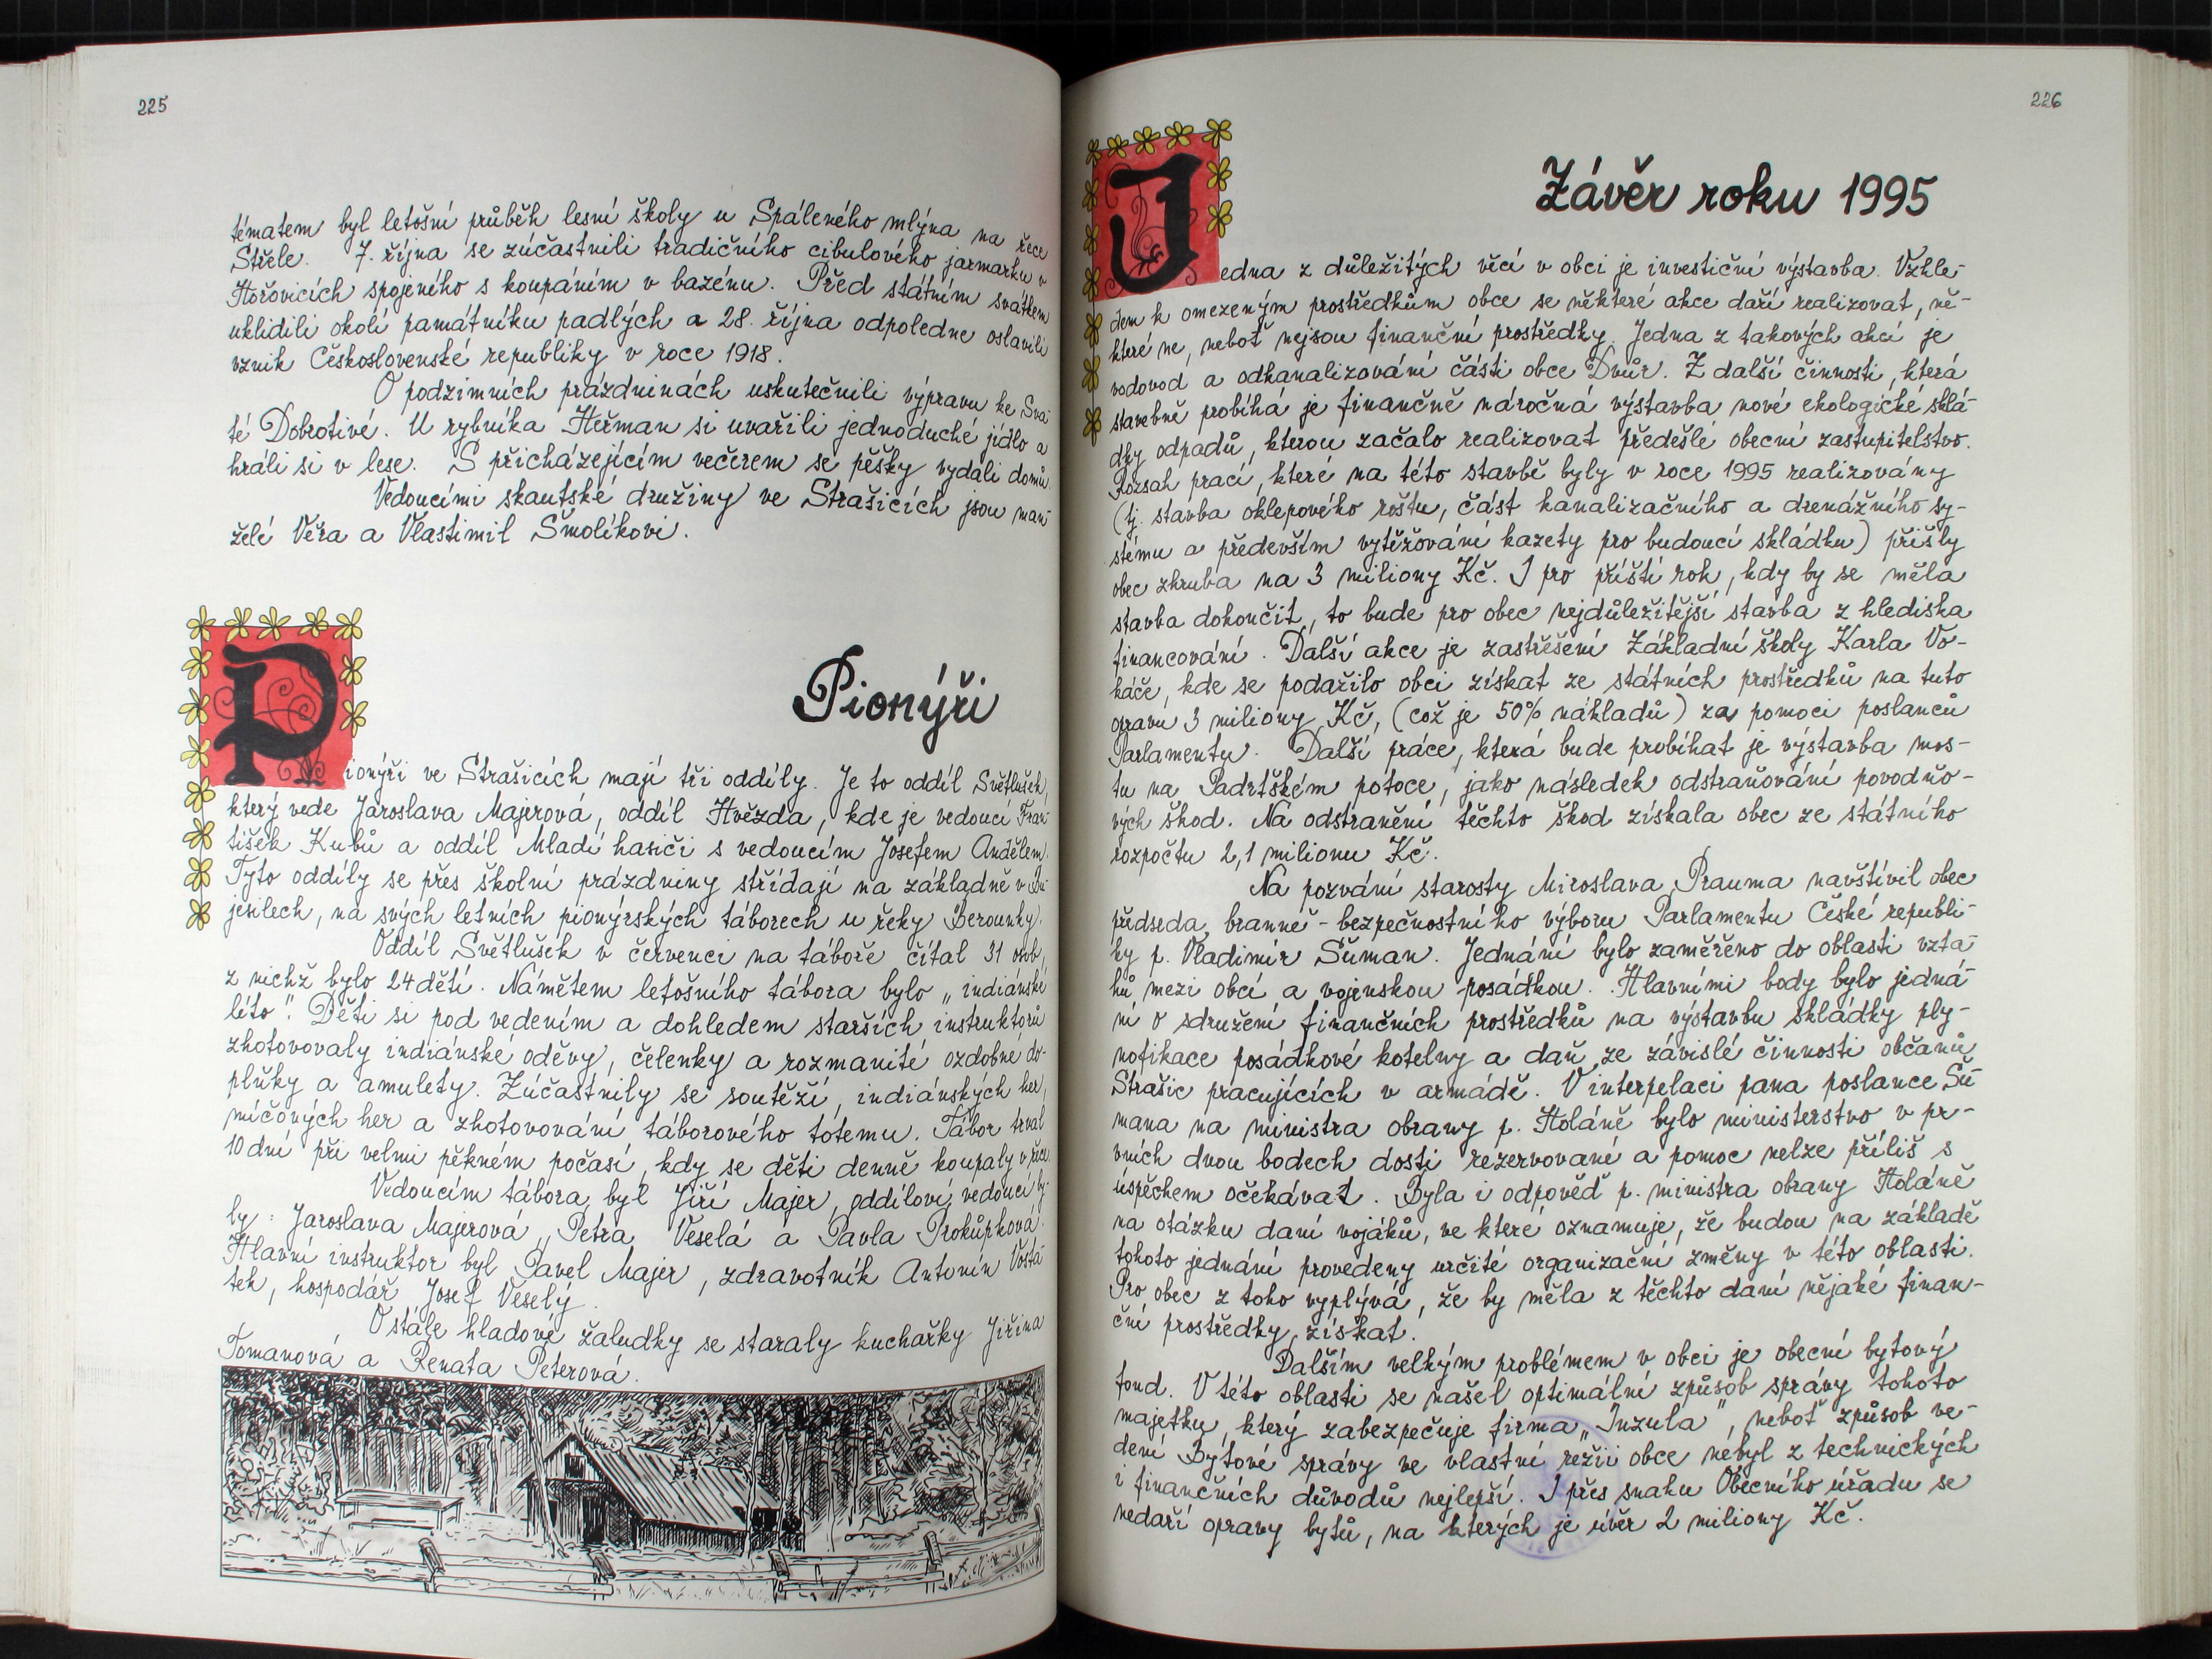 225
tématem byl letošní průběh lesní školy u Spáleného mlýna na řece
Střele. 7. října se zúčastnili tradičního cibulového jarmarku v
Hořovicích spojeného s koupáním v bazénu. Před státním svátkem
uklidili okolí památníku padlých a 28. října odpoledne oslavili
vznik Československé republiky v roce 1918.
O podzimních prázdninách uskutečnili výpravu ke Sva-
té Dobrotivé. U rybníka Heřman si uvařili jednoduché jídlo a
hráli si v lese. S přicházejícím večerem se pěšky vydali domů.
Vedoucími skautské družiny ve Strašicích jsou man-
želé Věra a Vlastimil Šmolíkovi.
Pionýři
Pionýři ve Strašicích mají tři oddíly. Je to oddíl Světlušek,
který vede Jaroslava Majerová, oddíl Hvězda, kde je vedoucí Fran-
tišek Kubů a oddíl Mladí hasiči s vedoucím Josefem Andělem.
Tyto oddíly se přes školní prázdniny střídají na základně v Bu-
jesilech, na svých letních pionýrských táborech u řeky Berounky.
Oddíl Světlušek v červenci na táboře čítal 31 osob,
z nichž bylo 24 dětí. Námětem letošního tábora bylo „indiánské
léto". Děti si pod vedením a dohledem starších instruktorů
zhotovovaly indiánské oděvy, čelenky a rozmanité ozdobné do-
plňky a amulety. Zúčastnily se soutěží, indiánských her,
míčových her a zhotovování táborového totemu. Tábor trval
10 dní při velmi pěkném počasí, kdy se děti denně koupaly v řece.
Vedoucím tábora byl Jiří Majer, oddíloví vedoucí by-
ly: Jaroslava Majerová, Petra Veselá a Pavla Prokůpková.
Hlavní instruktor byl Pavel Majer, zdravotník Antonín Vostá-
tek, hospodář Josef Veselý.
O stále hladové žaludky se staraly kuchařky Jiřina
Tomanová a Renata Peterová.
226
Závěr roku 1995
Jedna z důležitých věcí v obci je investiční výstavba. Vzhle-
dem k omezeným prostředkům obce se některé akce daří realizovat, ně-
které ne, neboť nejsou finanční prostředky. Jedna z takových akcí je
vodovod a odkanalizování části obce Dvůr. Z další činnosti, která
stavebně probíhá je finančně náročná výstavba nové ekologické sklá-
dky odpadů, kterou začalo realizovat předešlé obecní zastupitelstvo.
Rozsah prací, které na této stavbě byly v roce 1995 realizovány
(tj. stavba oklepového roštu, část kanalizačního a drenážního sy-
stému a především vytěžování kazety pro budoucí skládku) přišly
obec zhruba na 3 miliony Kč. I pro příští rok, kdy by se měla
stavba dokončit, to bude pro obec nejdůležitější stavba z hlediska
financování. Další akce je zastřešení Základní školy Karla Vo-
káče, kde se podařilo obci získat ze státních prostředků na tuto
opravu 3 miliony Kč, (což je 50% nákladů) za pomoci poslanců
Parlamentu. Další práce, která bude probíhat je výstavba mos-
tu na Padrťském potoce, jako následek odstraňování povodňo-
vých škod. Na odstranění těchto škod získala obec ze státního
rozpočtu 2,1 milionu Kč.
Na pozvání starosty Miroslava Prauma navštívil obec
předseda branně-bezpečnostního výboru Parlamentu České republi-
ky p. Vladimír Šuman. Jednání bylo zaměřeno do oblasti vzta-
hů mezi obcí a vojenskou posádkou. Hlavními body bylo jedná-
ní o sdružení finančních prostředků na výstavbu skládky ply-
nofikace posádkové kotelny a daň ze závislé činnosti občanů
Strašic pracujících v armádě. V interpelaci pana poslance Šu-
mana na ministra obrany p. Holáně bylo ministerstvo v pr-
vních dvou bodech dosti rezervované a pomoc nelze příliš s
úspěchem očekávat. Byla i odpověď p. ministra obrany Holáně
na otázku daní vojáků, ve které oznamuje, že budou na základě
tohoto jednání provedeny určité organizační změny v této oblasti.
Pro obec z toho vyplývá, že by měla z těchto daní nějaké finan-
ční prostředky získat.
Dalším velkým problémem v obci je obecní bytový
fond. V této oblasti se našel optimální způsob správy tohoto
majetku, který zabezpečuje firma „Inzula", neboť způsob ve-
dení Bytové správy ve vlastní režii obce nebyl z technických
i finančních důvodů nejlepší. I přes snahu Obecního úřadu se
nedaří opravy bytů, na kterých je úvěr 2 miliony Kč.